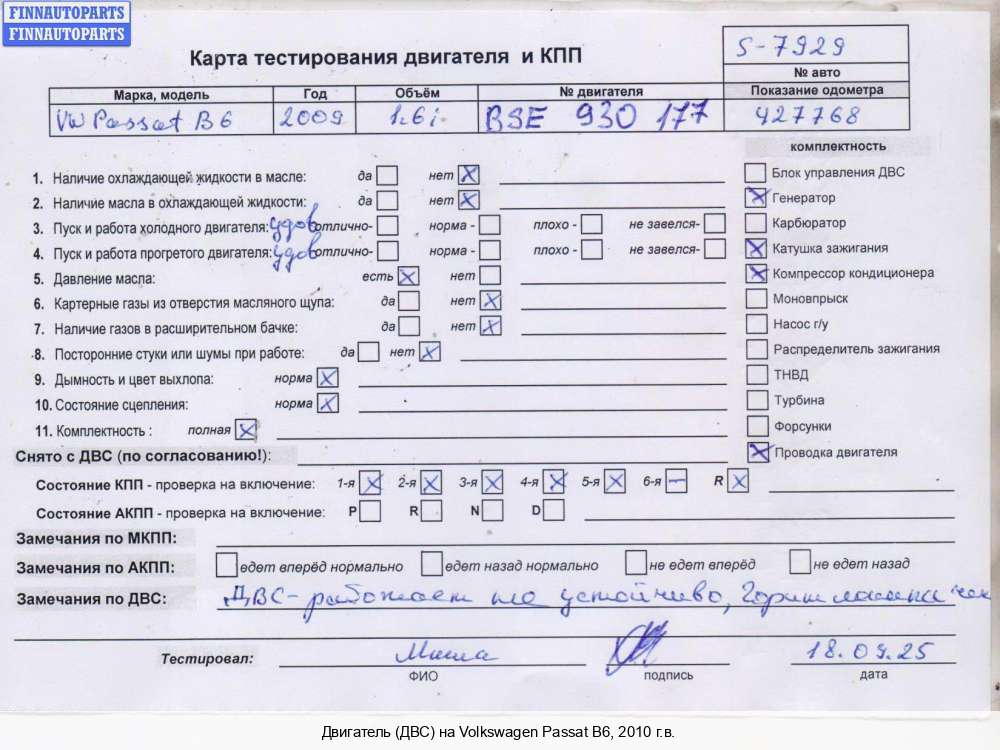 FINNAUTOPARTS
FINNAUTOPARTS
Карта тестирования двигателя и КПП
S-7929
№ авто
Марка, модель Год Объём № двигателя Показание одометра
VW Passat B6 2009 1.6i BSE 930 177 427768
комплектность
1. Наличие охлаждающей жидкости в масле: да нет
2. Наличие масла в охлаждающей жидкости: да нет
3. Пуск и работа холодного двигателя: удов отлично- норма - плохо - не завелся-
4. Пуск и работа прогретого двигателя: удов отлично- норма - плохо - не завелся-
5. Давление масла: есть нет
6. Картерные газы из отверстия масляного щупа: да нет
7. Наличие газов в расширительном бачке: да нет
8. Посторонние стуки или шумы при работе: да нет
9. Дымность и цвет выхлопа: норма
10. Состояние сцепления: норма
11. Комплектность : полная
Блок управления ДВС
Генератор
Карбюратор
Катушка зажигания
Компрессор кондиционера
Моновпрыск
Насос г/у
Распределитель зажигания
ТНВД
Турбина
Форсунки
Проводка двигателя
Снято с ДВС (по согласованию!):
Состояние КПП - проверка на включение: 1-я 2-я 3-я 4-я 5-я 6-я R
Состояние АКПП - проверка на включение: P R N D
Замечания по МКПП:
Замечания по АКПП: едет вперёд нормально едет назад нормально не едет вперёд не едет назад
Замечания по ДВС: ДВС- работает не устойчиво, Горит
Тестировал: Миша 18.09.25
ФИО подпись дата
Двигатель (ДВС) на Volkswagen Passat B6, 2010 г.в.